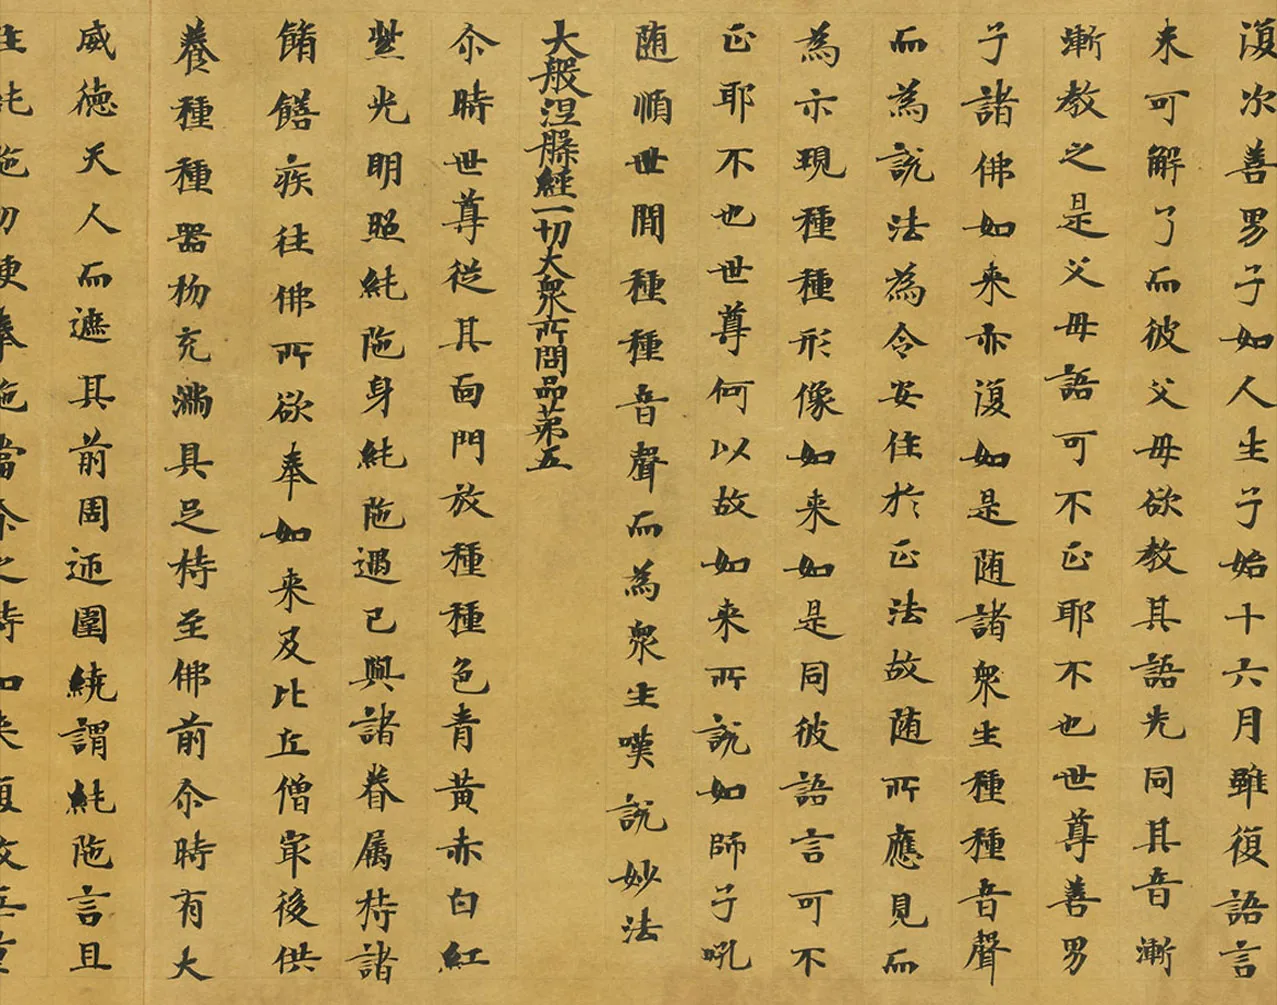 復次善男子如人生子始十六月雖復語言
未可解了而彼父母欲教其語先同其音漸
漸教之是父母語可不正耶不也世尊善男
子諸佛如来亦復如是随諸衆生種種音聲
而為説法為令安住於正法故随所應見而
為示現種種形像如来如是同彼語言可不
正耶不也世尊何以故如来所説如師子吼
随順世間種種音聲而為衆生嘆説妙法
大般涅槃經一切大衆所問品苐五
尒時世尊從其面門放種種色青黄赤白紅
𦾔光明照純陁身純陁遇已與諸眷属持諸
餚饍疾往佛所欲奉如来及比丘僧㝡後供
養種種器物充滿具足持至佛前尒時有大
威德天人而遮其前周迊圍繞謂純陁言且
住純陁勿便奉施當尒之時如来復放无量